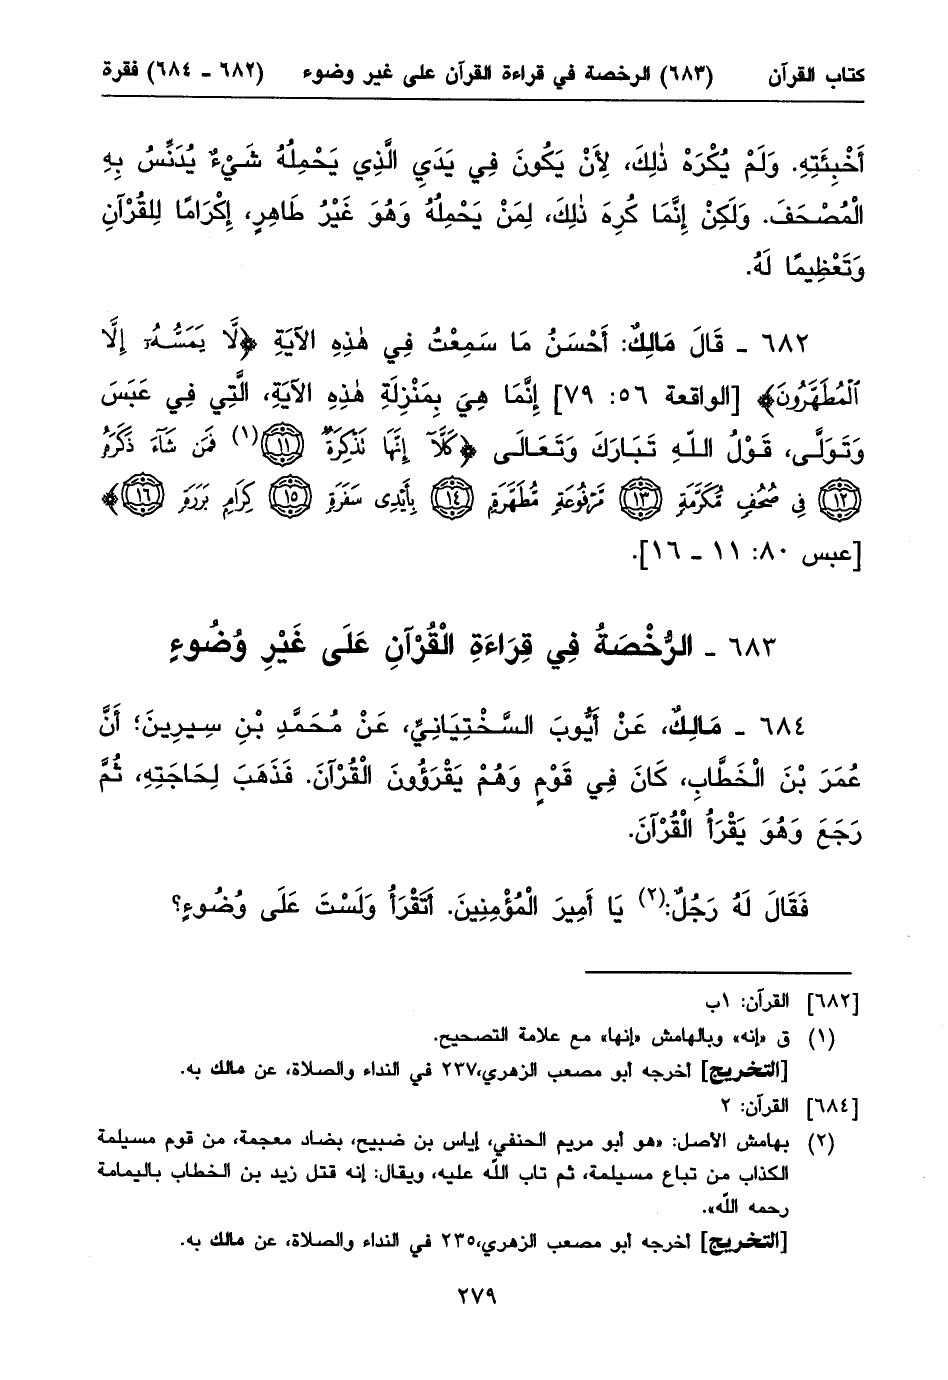 كتاب القرآن (٦٨٣) الرخصة في قراءة القرآن على غير وضوء (٦٨٢ - ٦٨٤) فقرة
أَخْبِئَتِهِ. وَلَمْ يُكْرَهْ ذٰلِكَ، لِأَنْ يَكُونَ فِي يَدَيِ الَّذِي يَحْمِلُهُ شَيْءٌ يُدَنِّسُ بِهِ
الْمُصْحَفَ. وَلَكِنْ إِنَّمَا كُرِهَ ذٰلِكَ، لِمَنْ يَحْمِلُهُ وَهُوَ غَيْرُ طَاهِرٍ، إِكْرَامًا لِلْقُرْآنِ
وَتَعْظِيمًا لَهُ.
٦٨٢ - قَالَ مَالِكٌ: أَحْسَنُ مَا سَمِعْتُ فِي هٰذِهِ الآيَةِ ﴿لَّا يَمَسُّهُۥٓ إِلَّا
ٱلْمُطَهَّرُونَ﴾ [الواقعة ٥٦: ٧٩] إِنَّمَا هِيَ بِمَنْزِلَةِ هٰذِهِ الآيَةِ، الَّتِي فِي عَبَسَ
وَتَوَلَّى، قَوْلُ اللهِ تَبَارَكَ وَتَعَالَى ﴿كَلَّآ إِنَّهَا تَذْكِرَةٌ ⑪(١) فَمَن شَآءَ ذَكَرَهُۥ
⑫ فِى صُحُفٍ مُّكَرَّمَةٍ ⑬ مَّرْفُوعَةٍ مُّطَهَّرَةٍۭ ⑭ بِأَيْدِى سَفَرَةٍ ⑮ كِرَامٍۭ بَرَرَةٍ ⑯﴾
[عبس ٨٠: ١١ - ١٦].
٦٨٣ - الرُّخْصَةُ فِي قِرَاءَةِ الْقُرْآنِ عَلَى غَيْرِ وُضُوءٍ
٦٨٤ - مَالِكٌ، عَنْ أَيُّوبَ السَّخْتِيَانِيِّ، عَنْ مُحَمَّدِ بْنِ سِيرِينَ؛ أَنَّ
عُمَرَ بْنَ الْخَطَّابِ، كَانَ فِي قَوْمٍ وَهُمْ يَقْرَؤُونَ الْقُرْآنَ. فَذَهَبَ لِحَاجَتِهِ، ثُمَّ
رَجَعَ وَهُوَ يَقْرَأُ الْقُرْآنَ.
فَقَالَ لَهُ رَجُلٌ:(٢) يَا أَمِيرَ الْمُؤْمِنِينَ. أَتَقْرَأُ وَلَسْتَ عَلَى وُضُوءٍ؟
[٦٨٢] القرآن: ١ب
(١) ق «إنه» وبالهامش «إنها» مع علامة التصحيح.
[التخريج] أخرجه أبو مصعب الزهري،٢٣٧ في النداء والصلاة، عن مالك به.
[٦٨٤] القرآن: ٢
(٢) بهامش الأصل: «هو أبو مريم الحنفي، إياس بن ضبيح، بضاد معجمة، من قوم مسيلمة
الكذاب من تباع مسيلمة، ثم تاب الله عليه، ويقال: إنه قتل زيد بن الخطاب باليمامة
رحمه الله».
[التخريج] أخرجه أبو مصعب الزهري،٢٣٥ في النداء والصلاة، عن مالك به.
٢٧٩